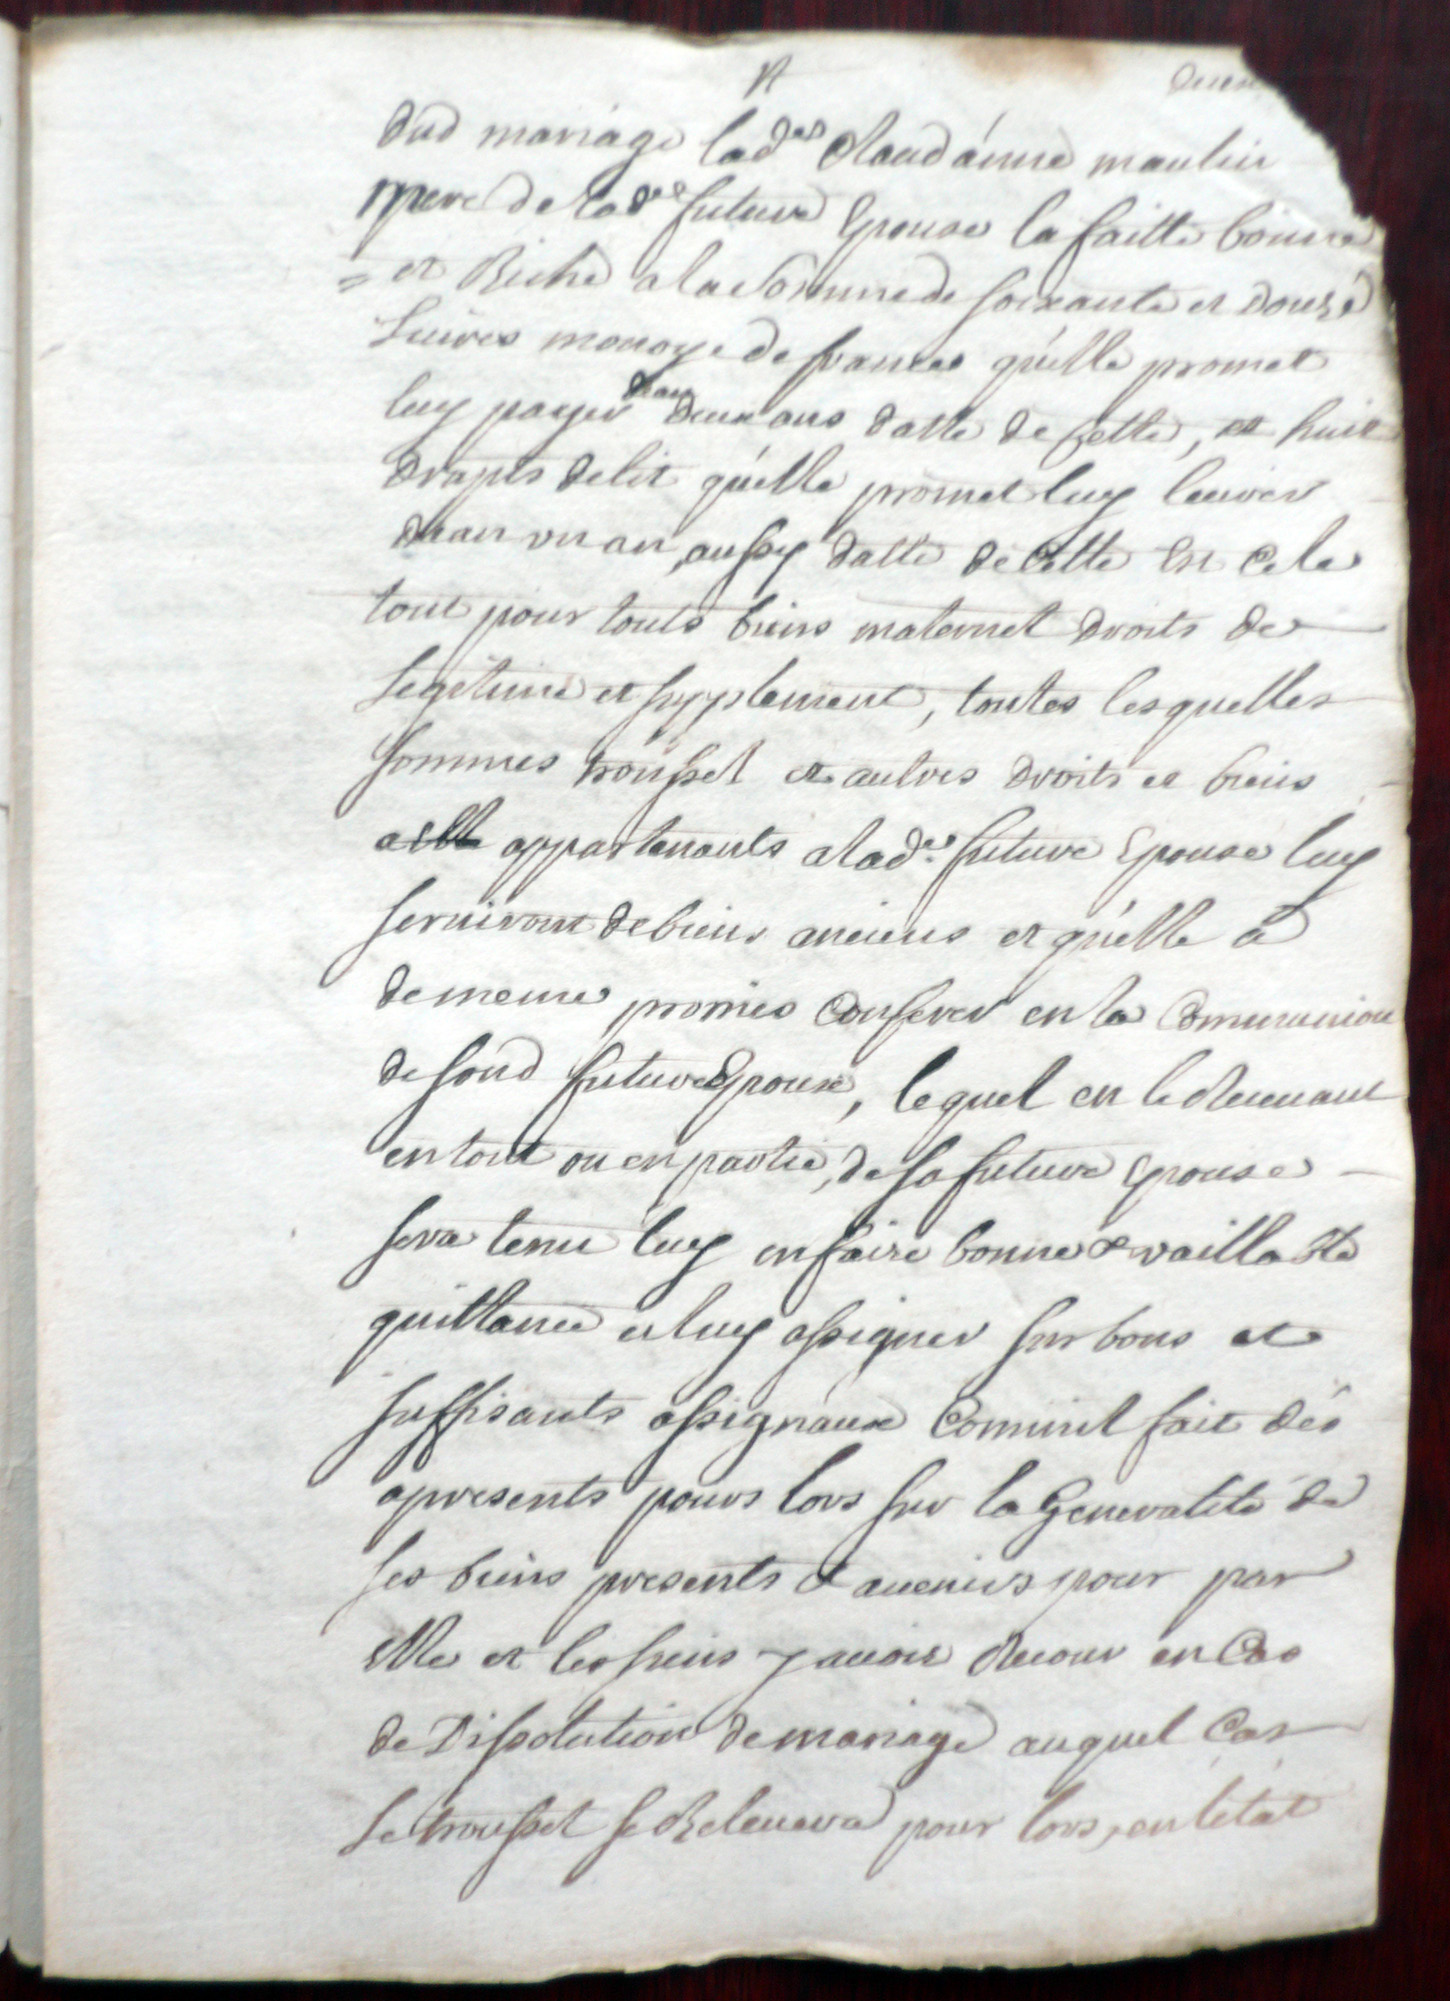 dud mariage lad.es Claud'anne maulin
mere de lad.es future Epouse la faitte bonne
= et Riche a la somme de soixante et douze
Livres monoye de frances qu'elle promet
luy payer dean deux ans datte de cette, et huit
draps delit qu'elle promet luy livrer
dean un an, aussy datte de cette Et Cela
tout pour touts biens maternel droits de
legitime et supplement, toutes lesquelles
sommes troussel et autres droits et biens
a elle appartenants a lad.es future Epouse luy
serviront de biens anciens et qu'elle a
de meme promis Conferer en la Communion
de sond future Epoux, lequel en le Recevant
en tout ou en partie, de sa future Epouse
sera tenu luy en faire bonne & vaillable
quittance et luy assigner sur bons et
suffisants assignaux Comm'il fait dés
apresents pours lors sur la Generalité de
ses biens presents et avenirs pour par
elle et les siens y avoir Recour en Cas
de Dissolution de mariage auquel Cas
le troussel se Relevera pour lors, en l'état